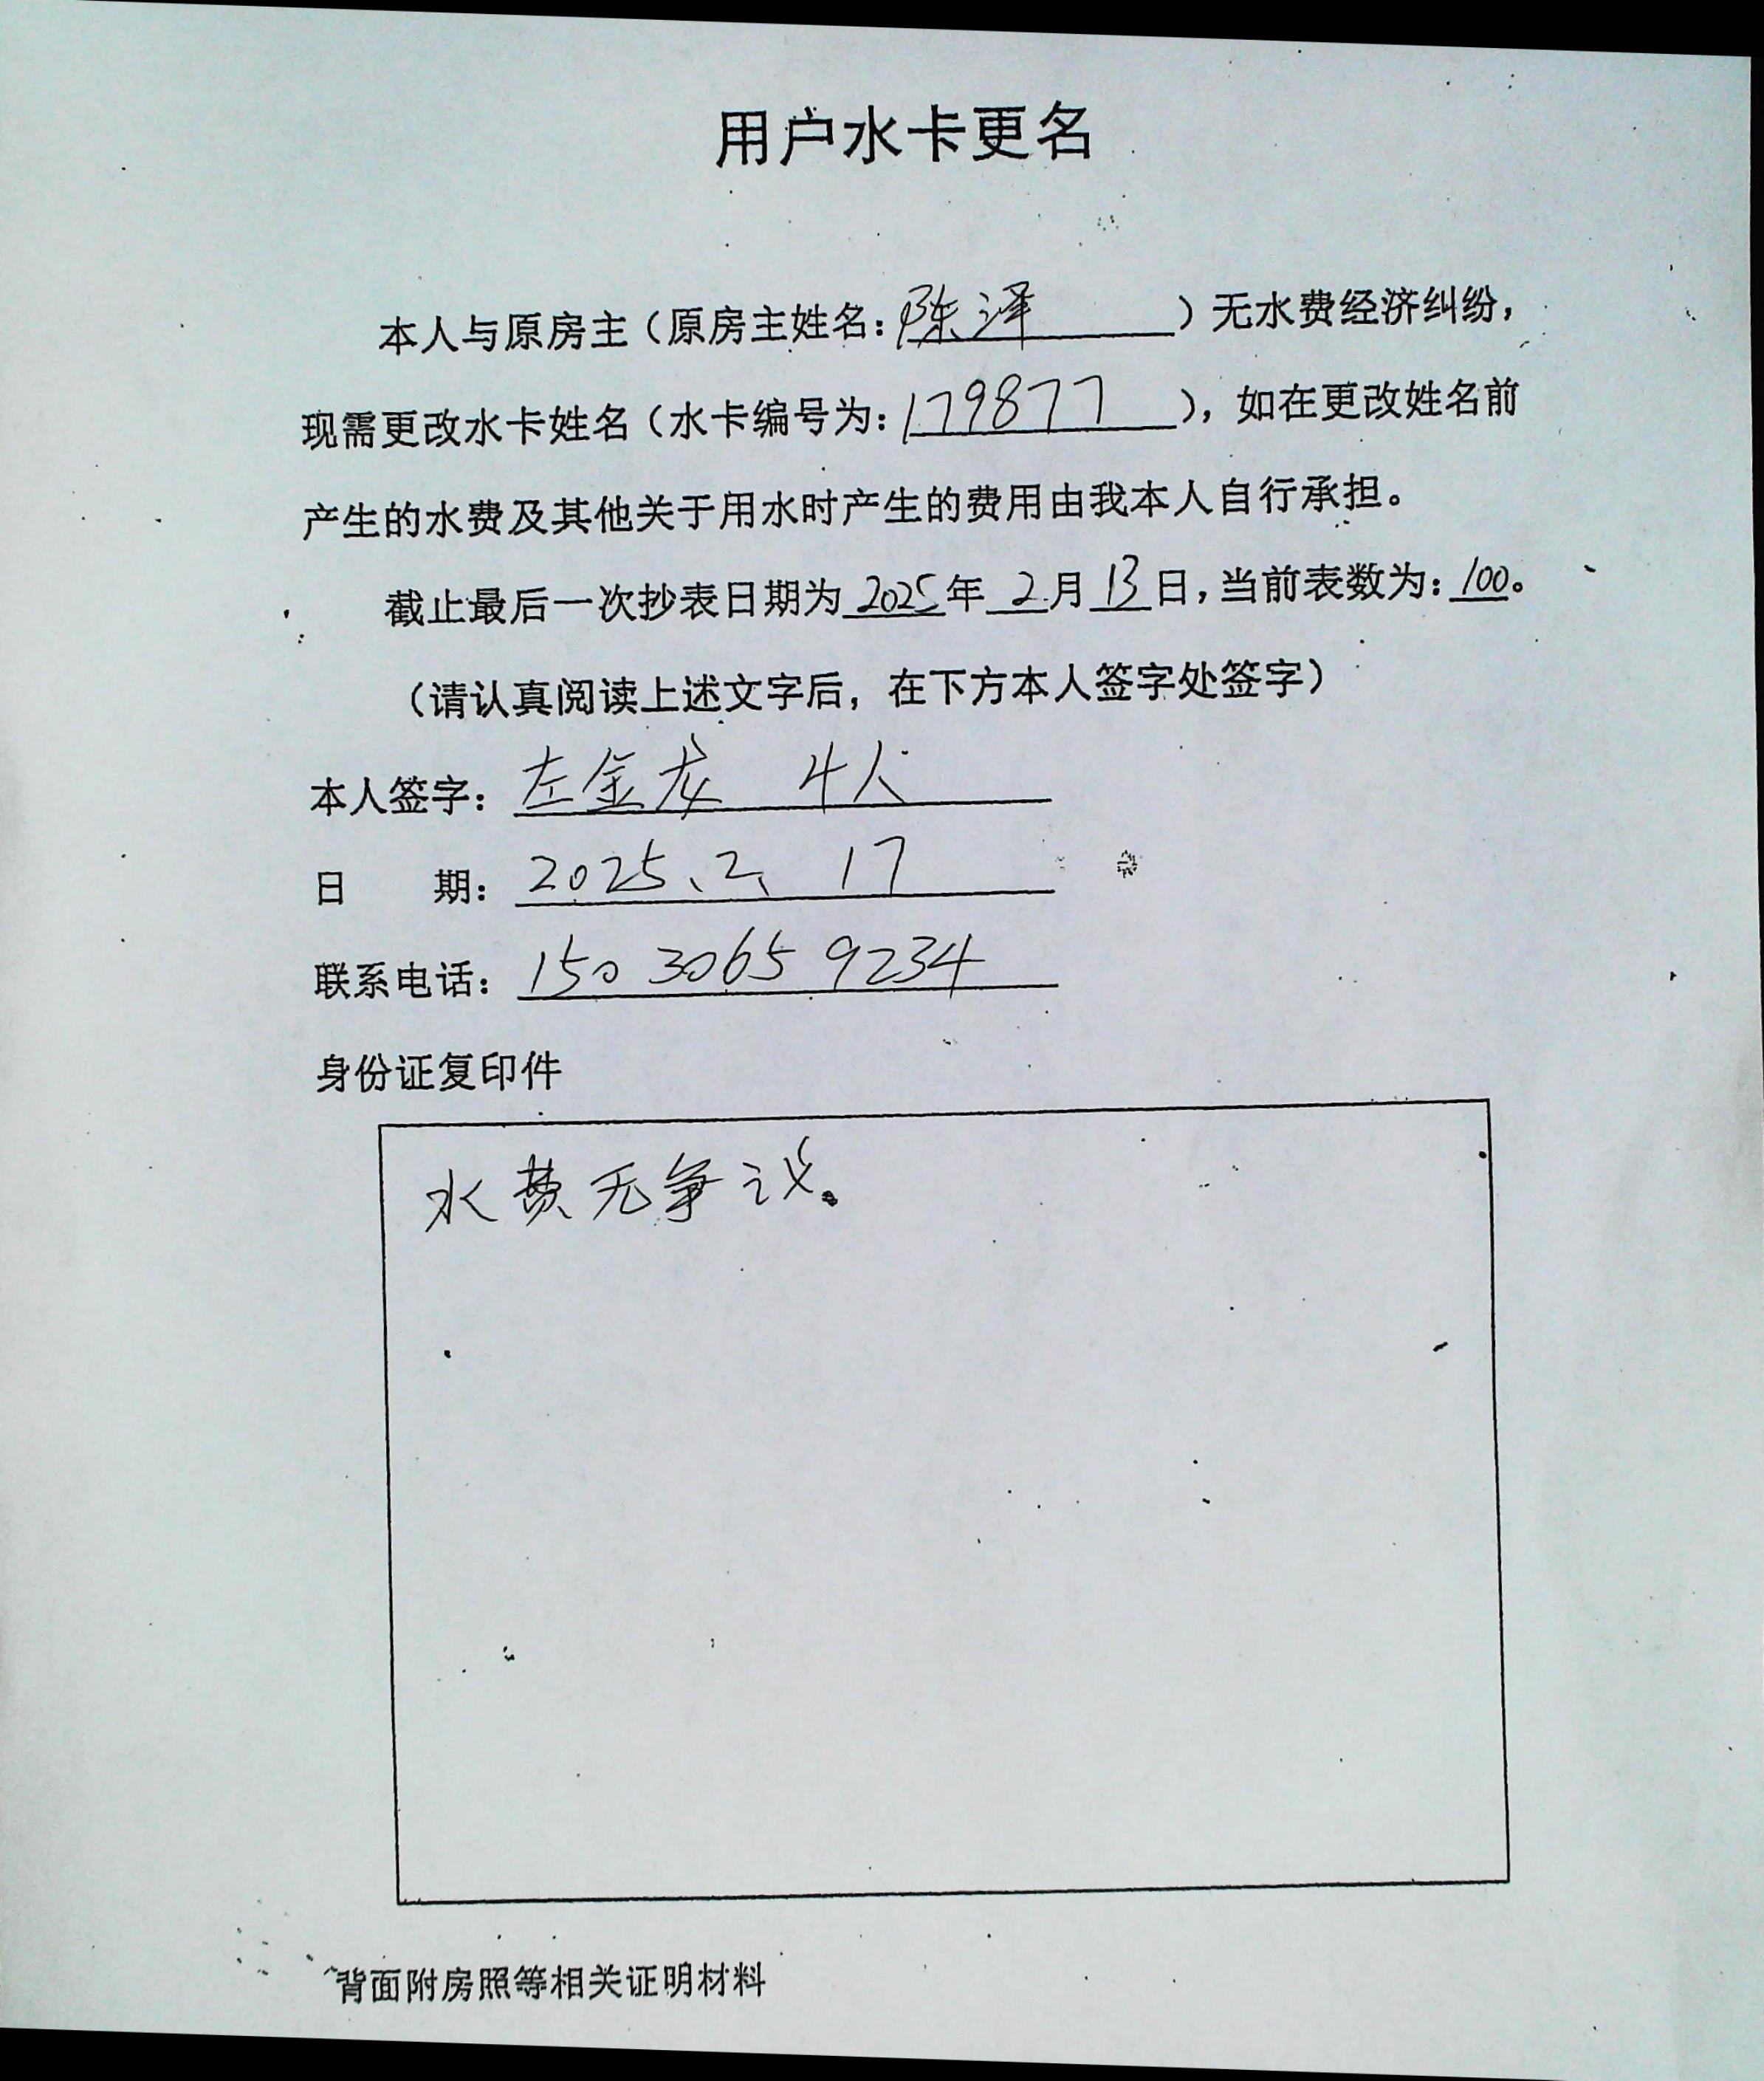 用户水卡更名
本人与原房主（原房主姓名：陈泽）无水费经济纠纷，
现需更改水卡姓名（水卡编号为：179877），如在更改姓名前
产生的水费及其他关于用水时产生的费用由我本人自行承担。
截止最后一次抄表日期为2025年2月13日，当前表数为：100。
（请认真阅读上述文字后，在下方本人签字处签字）
本人签字：左金龙 4人
日 期：2025、2、17
联系电话：150 3065 9234
身份证复印件
水费无争议。
背面附房照等相关证明材料